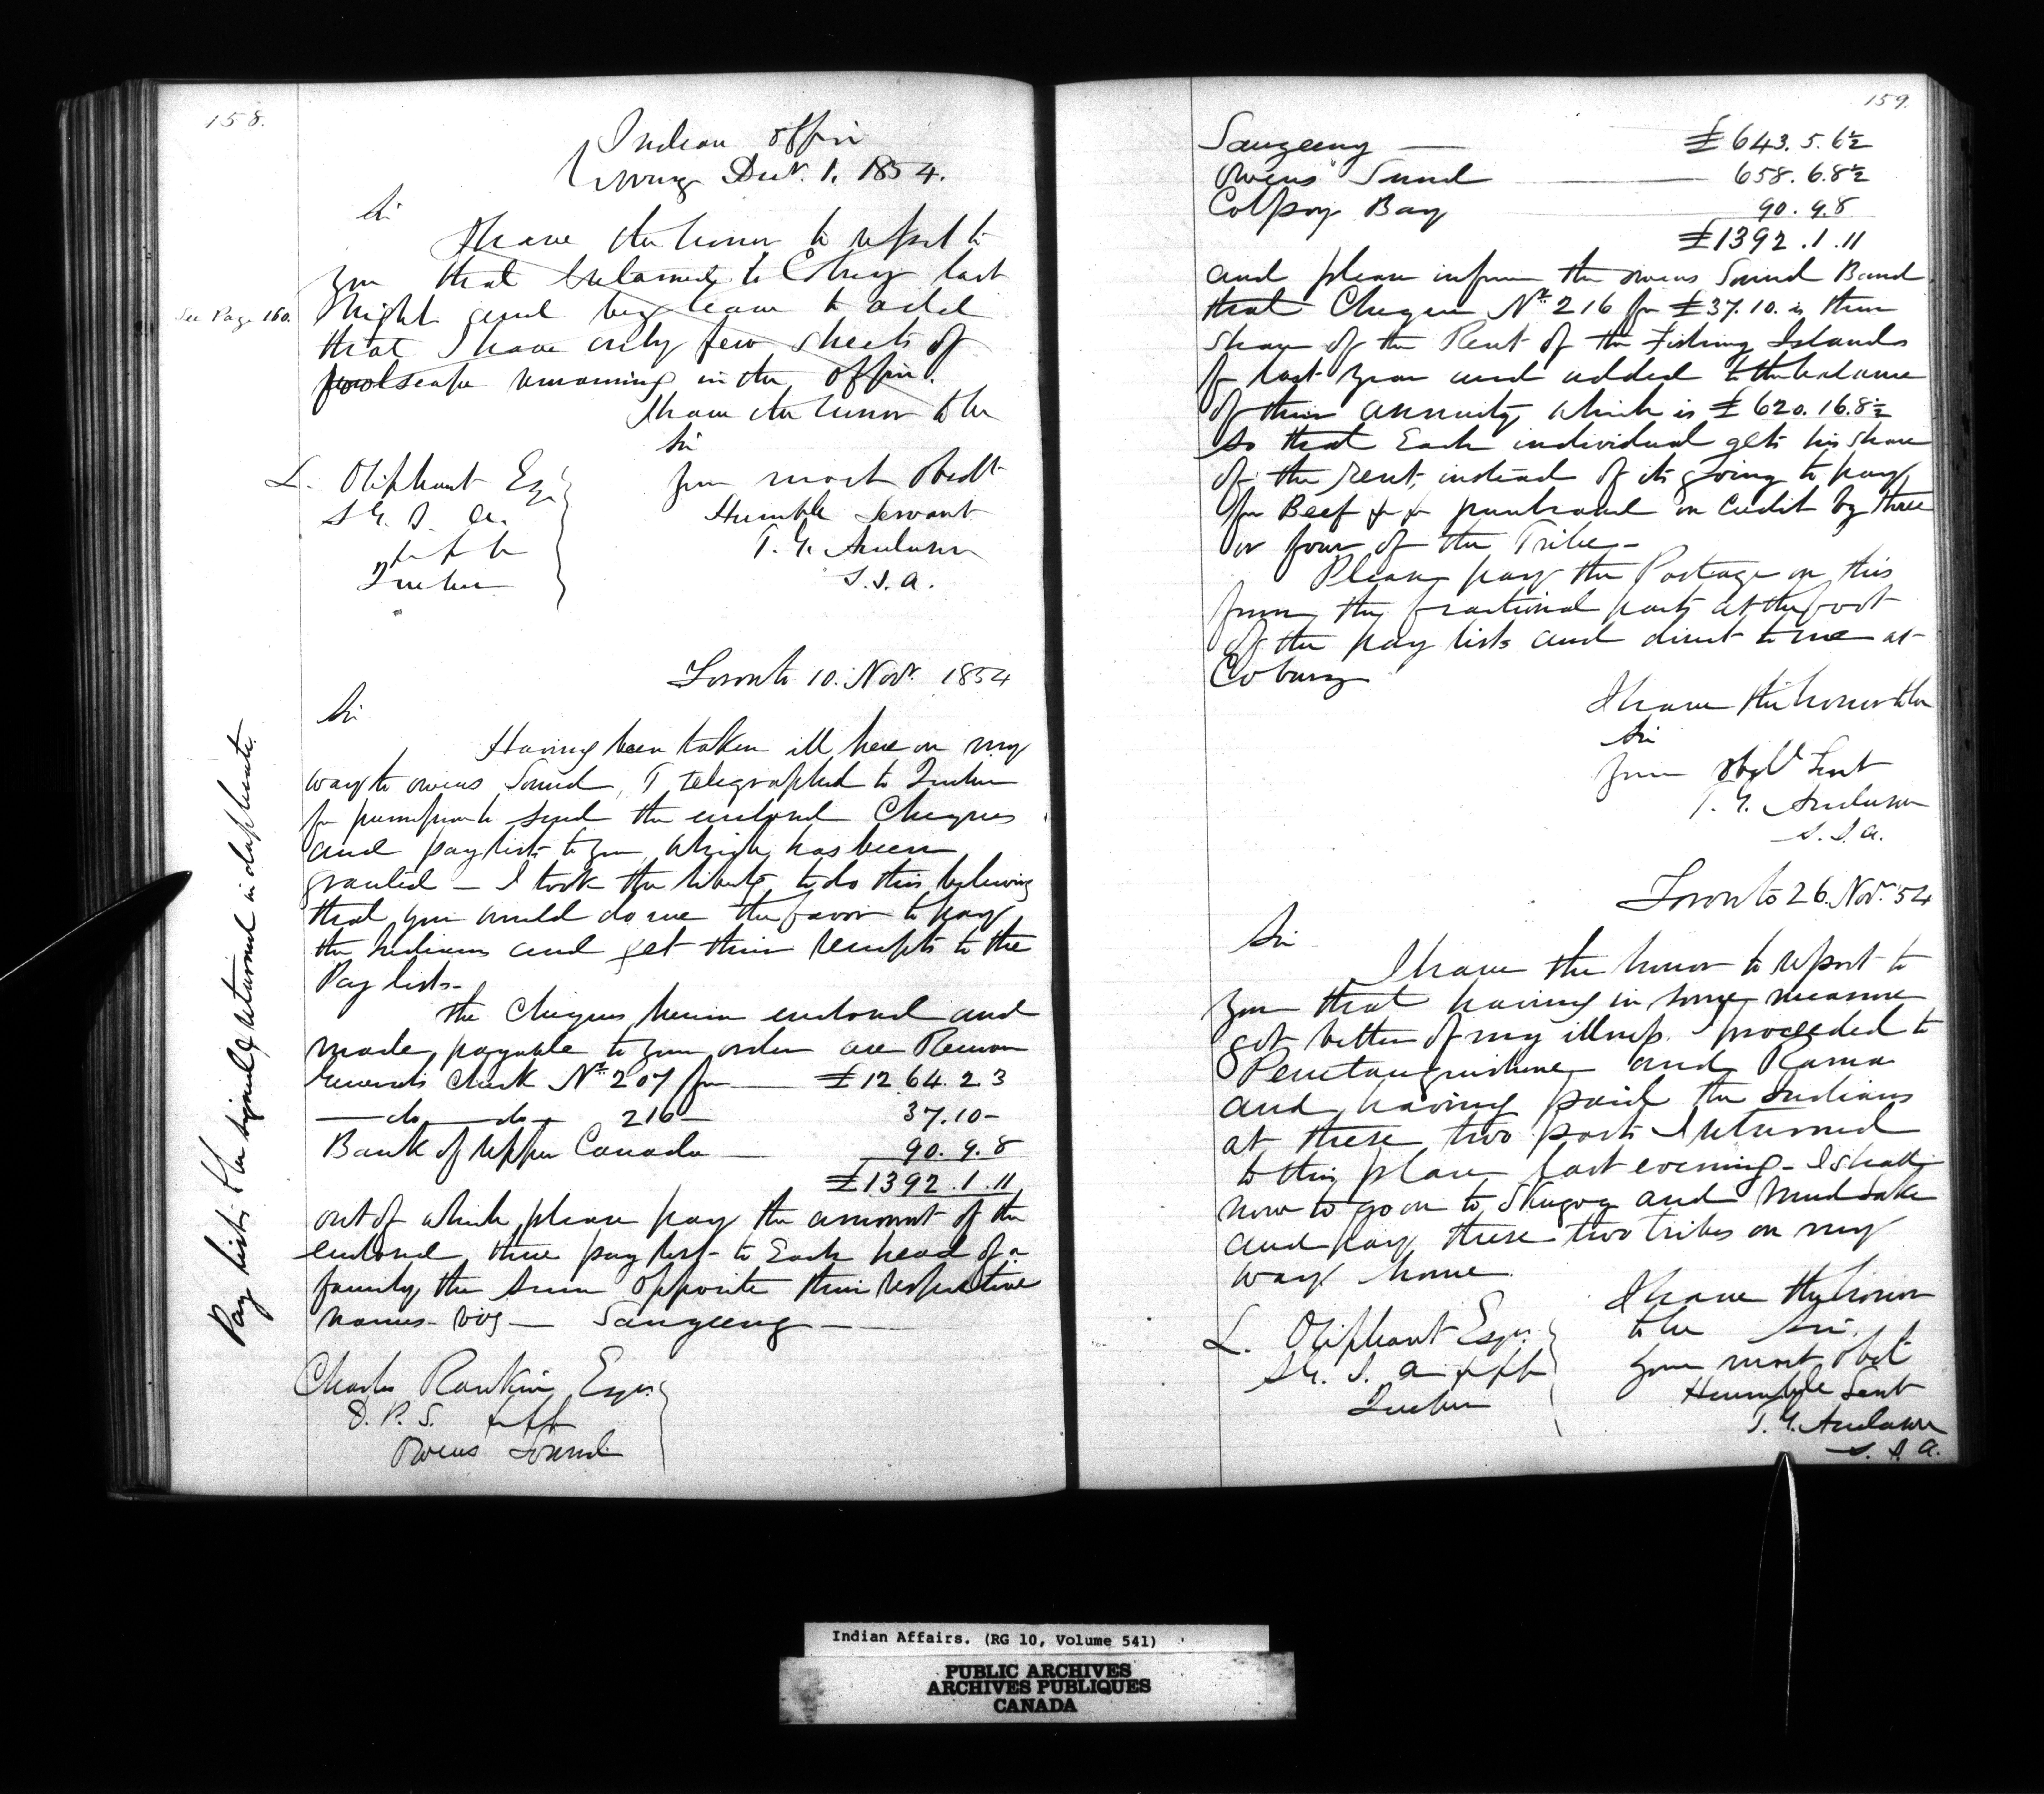 158.
Indian Office
Cobourg Decr. 1. 1854.
Sir
I have the honor to report to
you that I returned to Cobourg last
See Page 160.
Night and beg leave to add
that I have only few sheets of
foolscape remaining in the office.
I have the honor to be
Sir
Your most Obedt
Humble Servant
T. G. Anderson
S. I. A.
L. Oliphant Esqr
S. G. I. A.
&c &c &c
Quebec
Toronto 10. Novr. 1854
Sir
Having been taken ill here on my
way to Owens Sound, I telegraphed to Quebec
for permission to send the enclosed Cheques
and pay lists to you, which has been
granted — I took the liberty to do this believing
that you would do me the favor to pay
the Indians and get their receipts to the
Pay lists —
The Cheques herein enclosed and
made payable to your order are Receiver
Generals Check No. 207 for — £1264.2.3
— do — do — 216 — 37.10 —
Bank of Upper Canada — 90.9.8
£1392.1.11
out of which please pay the amount of the
enclosed three pay list — to Each head of a
family the sum opposite their respective
names — viz — Saugeeng —
Charles Rankin Esqr.
D. P. S. &c &c
Owens Sound
Pay lists to be signed & returned in duplicate.
159.
Saugeeng — £643.5.6½
Owens Sound — 658.6.8½
Colpoy Bay 90.9.8
£1392.1.11
and please inform the Owens Sound Band
that Cheque No. 216 for £37.10. is their
share of the Rent of the Fishing Islands
for last year and added to the balance
of their annuity, which is £620.16.8½
so that Each individual gets his share
of the rent, instead of its going to pay
for Beef &c &c purchased on credit by three
or four of the Tribe —
Please pay the Postage on this
from the fractional parts at the foot
of the pay lists and direct to me at
Cobourg
I have the honor to be
Sir
Your obdt. Servt
T. G. Anderson
S. I. A.
Toronto 26. Novr. 54
Sir
I have the honor to report to
you that having in some measure
got better of my illness I proceeded to
Penetanguishene and Rama
and having paid the Indians
at these two posts I returned
to this place last evening — I shall
now to go on to Skugog and Mud Lake
and pay these two tribes on my
way home.
I have the honor
to be Sir,
Your most obdt
Humble Servt
T. G. Anderson
S. I. A.
L. Oliphant Esqr.
S. G. I. A &c &c
Quebec
Indian Affairs. (RG 10, Volume 541)
PUBLIC ARCHIVES
ARCHIVES PUBLIQUES
CANADA